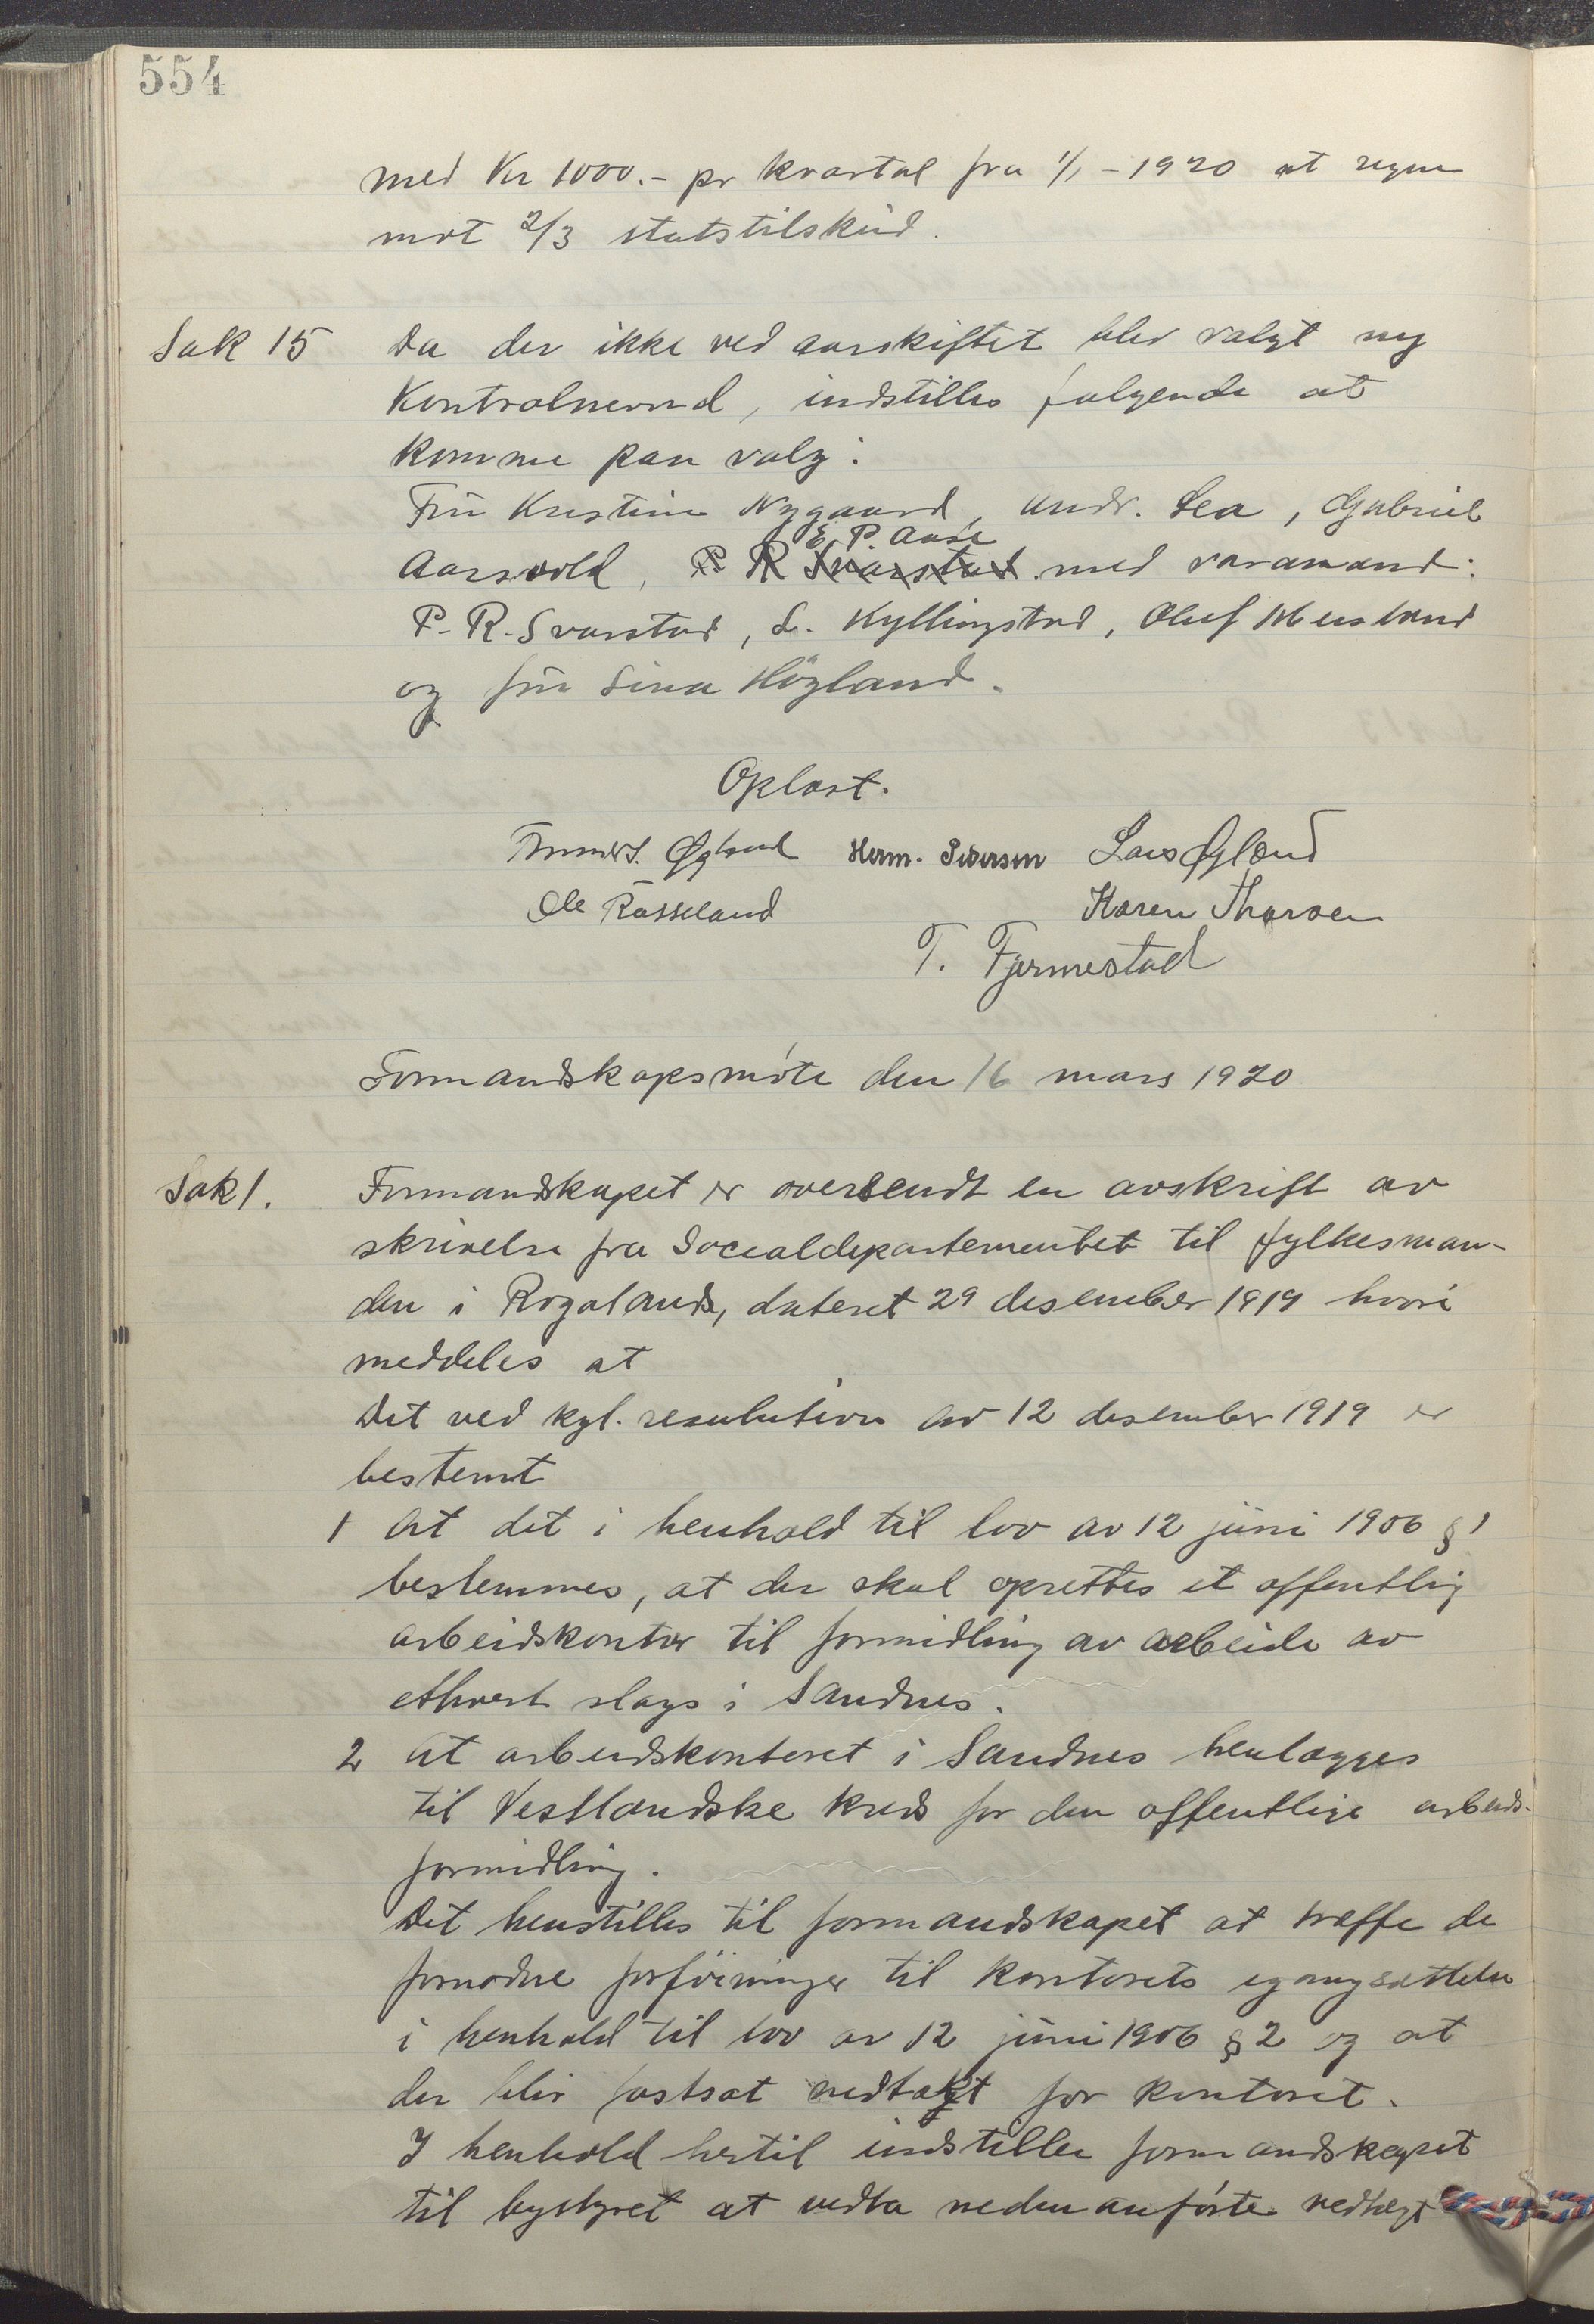 554
med Kr 1000.- pr kvartal fra 1/1 - 1920 at regne
mot 2/3 statstilskud.
Sak 15 Da der ikke ved aarskiftet blev valgt ny
Kontrolnevnd, indstilles følgende at
komme paa valg:
Fru Kristine Nygaard, Andr. Lea, Gabriel
E. P. Aase
Aarsvold, P R Svarstad med varamænd:
P. R. Svarstad, L. Kyllingstad, Oluf
og fru Sina Høgland.
Oplæst.
Øgland Herm. Siversen Lars Øglænd
Ole Røsseland Karen Thorsen
T. Fjermestad
Formandskapsmøte den 16 mars 1920
Sak 1. Formandskapet er oversendt en avskrift av
skrivelse fra Socialdepartementet til fylkesman-
den i Rogaland, dateret 29 desember 1919 hvori
meddeles at
Det ved kgl. resolution av 12 desember 1919 er
bestemt
1 At det i henhold til lov av 12 juni 1906 § 1
bestemmes, at der skal oprettes et offentlig
arbeidskontor til formidling av arbeide av
ethvert slags i Sandnes.
2 At arbeidskontoret i Sandnes henlægges
til Vestlandske kreds for den offentlige arbeids-
formidling.
Det henstilles til formandskapet at træffe de
fornødne forføininger til kontorets igangsættelse
i henhold til lov av 12 juni 1906 § 2 og at
der blir fastsat vedtægt for kontoret.
I henhold hertil indstiller formandskapet
til bystyret at vedta nedenanførte vedtægt